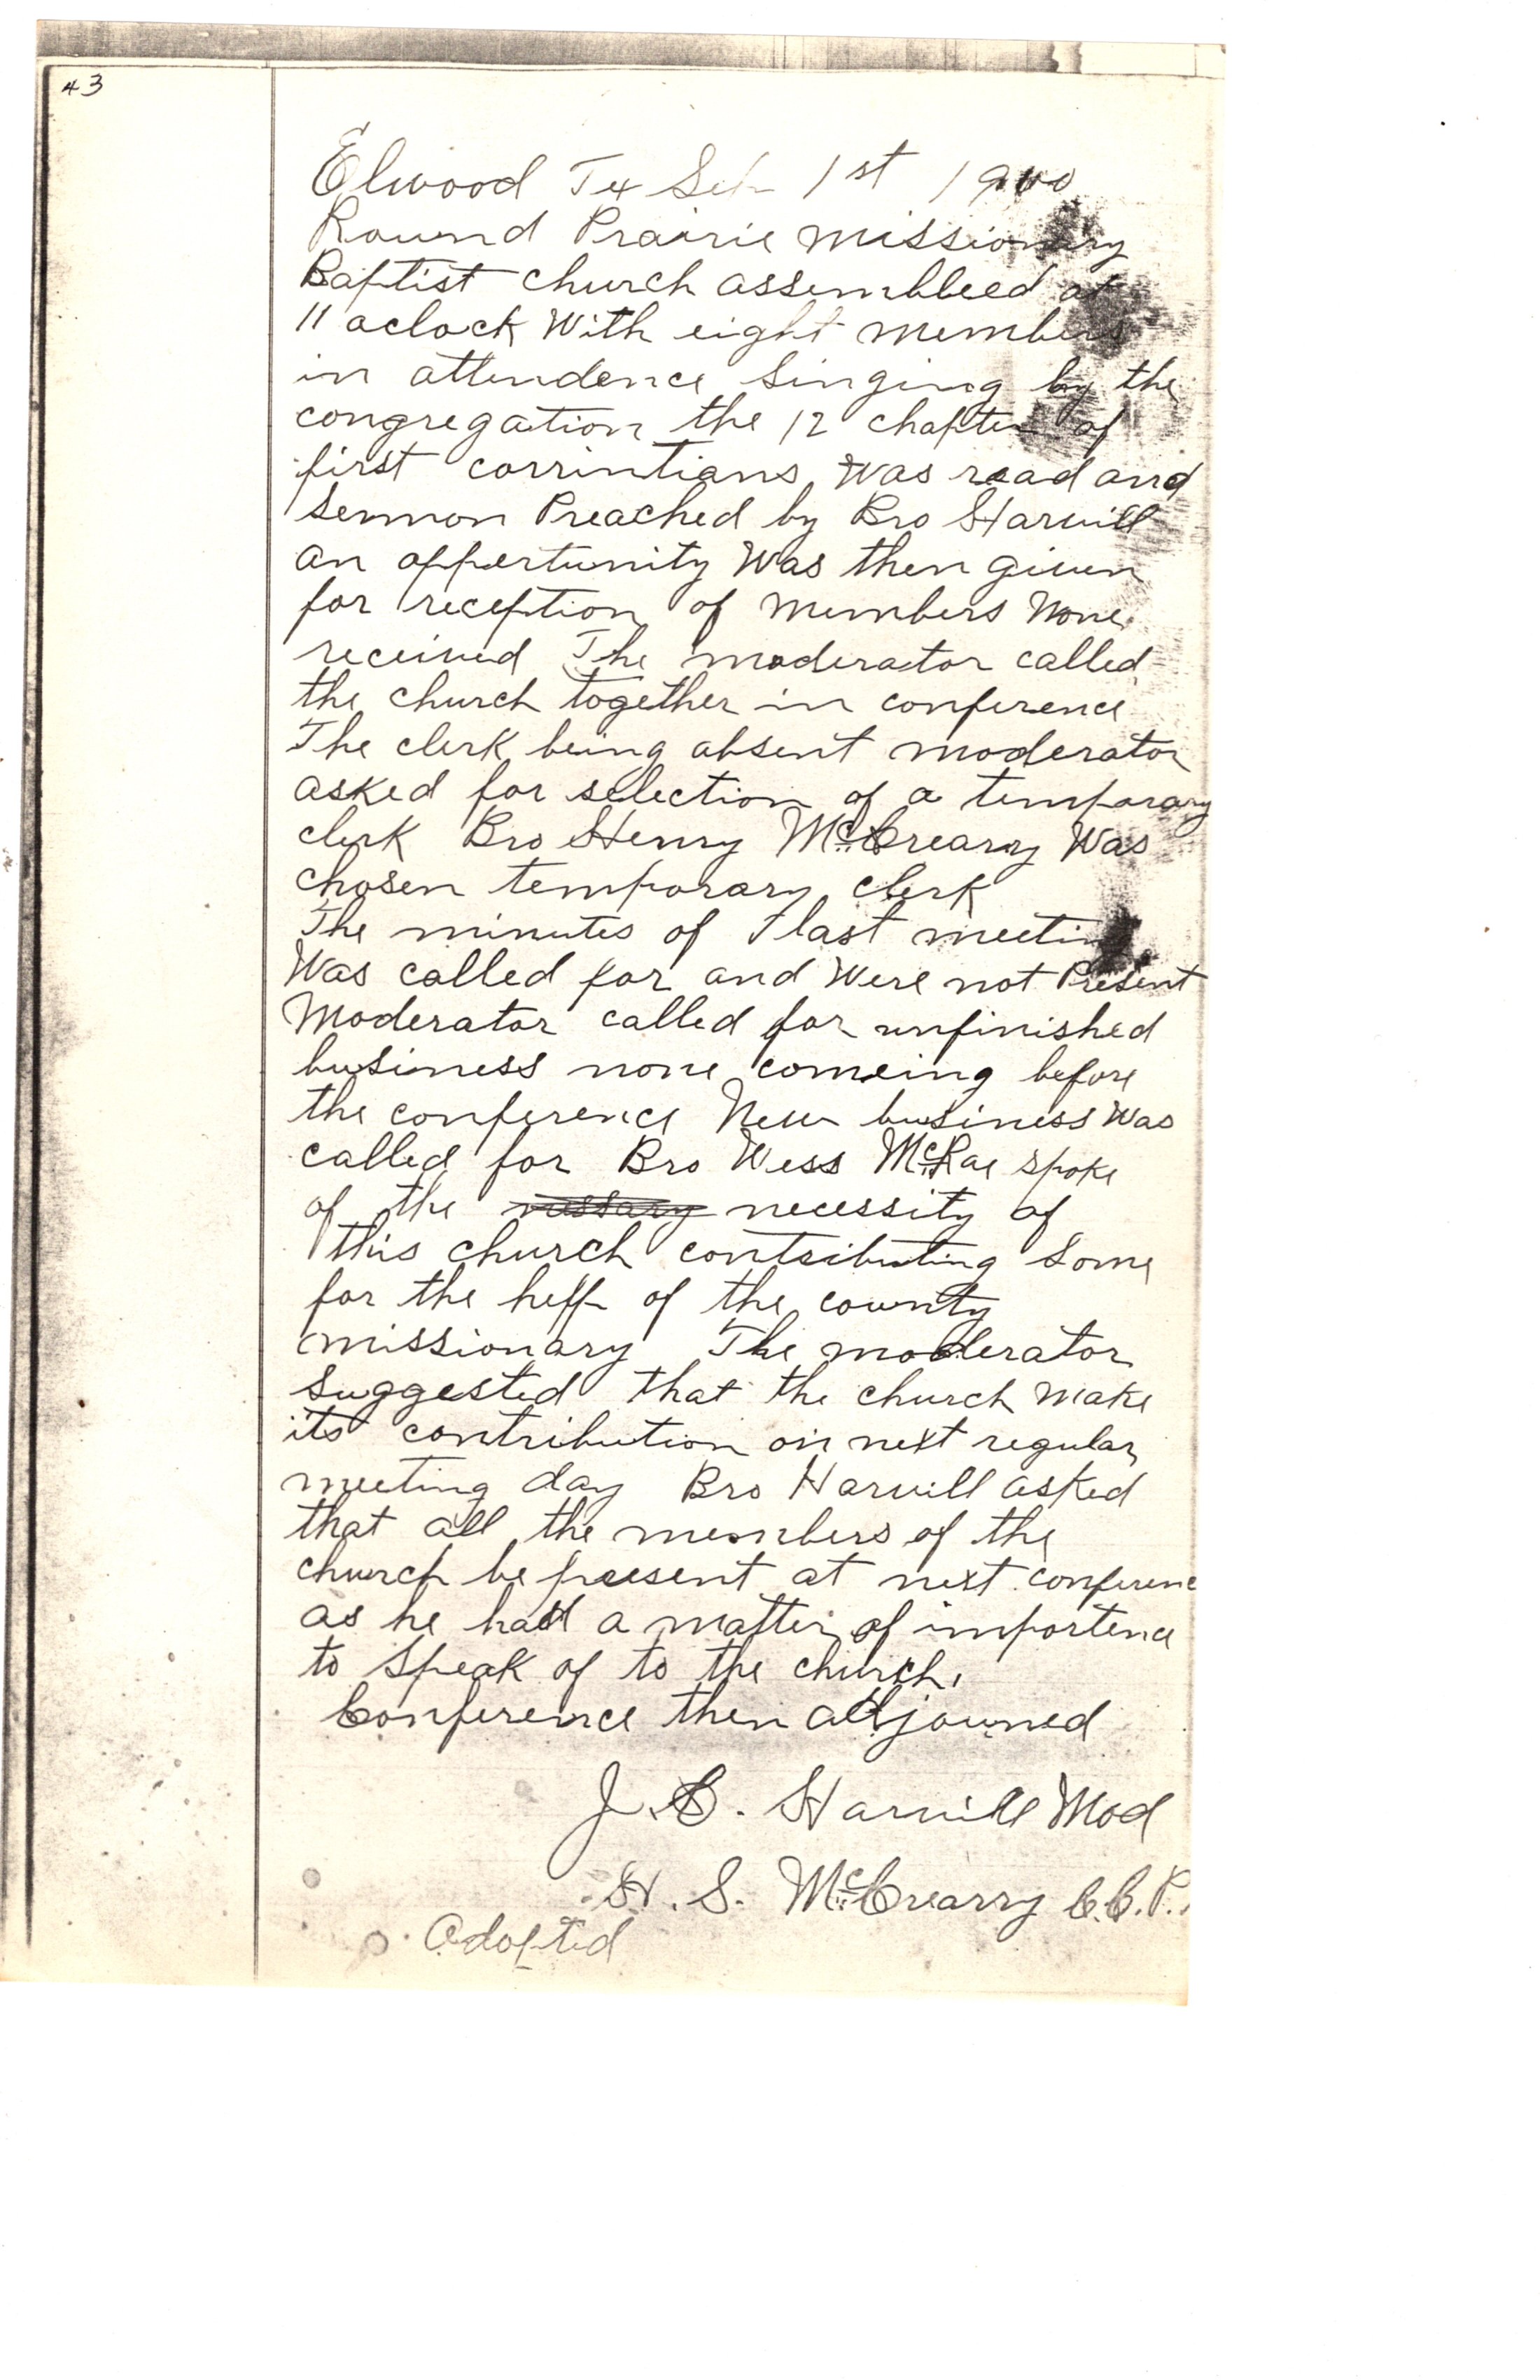 43
Elwood Tx Sep 1st 1900
Round Prairie Missionary
Baptist church assembleed at
11 aclock With eight members
in attendence Singing by the
congregation the 12 chapter of
first corrintians Was read and
Sermon Preached by Bro Harvill
an oppertunity Was then given
for reception of members None
received The moderator called
the church together in conference
The clerk being absent moderator
asked for selection of a temporary
clerk Bro Henry McCreary Was
chosen temporary clerk
The minutes of last meeting
Was called for and Were not Present
Moderator called for unfinished
business none comeing before
the conference New business Was
called for Bro Wess McRae spoke
of the necessity of
this church contributing Some
for the help of the county
missionary The moderator
Suggested that the church make
its contribution on next regular
meeting day Bro Harvill asked
that all the members of the
church be present at next conferenc
as he had a matter of importence
to Speak of to the church.
Conference then adjouned
J. C. Harvill Mod
H. S. McCrearry C.C.P.
Adopted